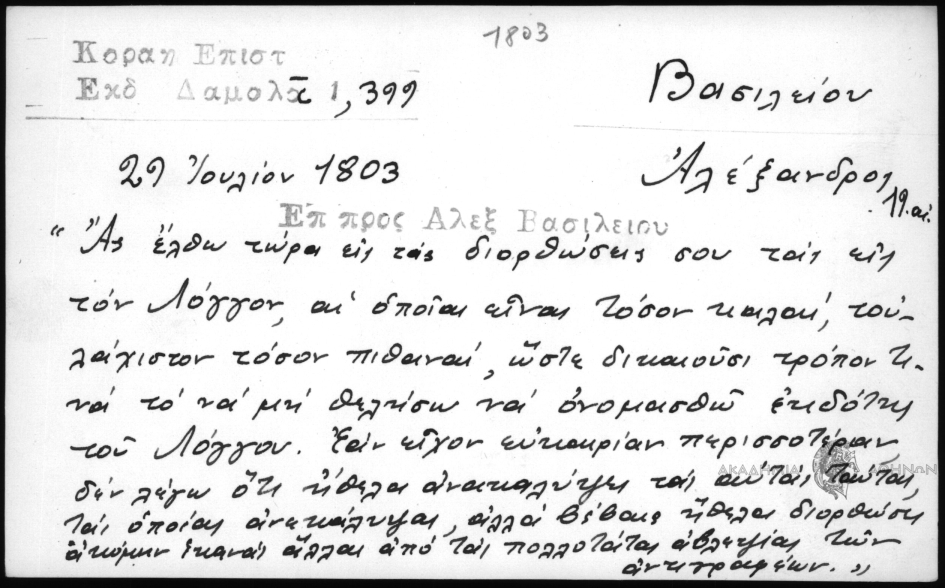 1803
Κοραη Επιστ
Εκδ Δαμαλᾶ 1,399
Βασιλείου
29 Ἰουλίου 1803
Ἀλέξανδρος
19. αἰ.
Επ προς Αλεξ Βασιλειου
"Ἄς ἔλθω τώρα εἰς τάς διορθώσεις σου τάς εἰς
τόν Λόγγον, αἱ ὁποῖαι εἶναι τόσον καλαί, τοὐ-
λάχιστον τόσον πιθαναί, ὥστε δικαιοῦσι τρόπον τι-
νά τό νά μή θελήσω νά ὀνομασθῶ ἐκδότης
τοῦ Λόγγου. Ἐάν εἶχον εὐκαιρίαν περισσοτέραν
δέν λέγω ὅτι ἤθελα ἀνακαλύψει τάς αὐτάς ταύτας,
τάς ὁποίας ἀνεκάλυψας, ἀλλά βέβαια ἤθελα διορθώσει
ἀκόμην ἱκανάς ἄλλας ἀπό τάς πολλοτάτας ἀβλεψίας τῶν
ἀντιγραφέων."
ΑΚΑΔΗΜΙΑ ΑΘΗΝΩΝ